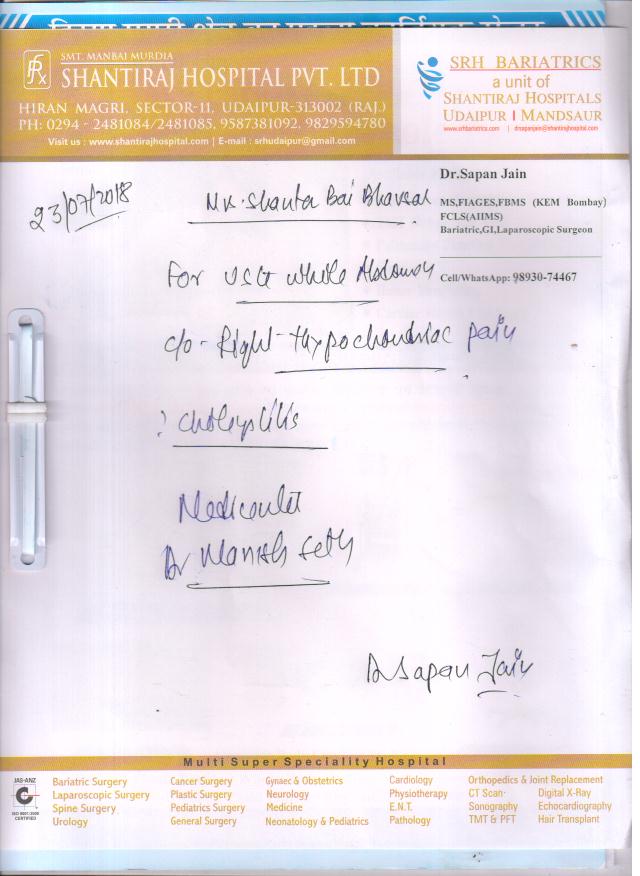 SMT. MANBAI MURDIA
SHANTIRAJ HOSPITAL PVT. LTD
HIRAN MAGRI, SECTOR-11, UDAIPUR-313002 (RAJ.)
PH: 0294 - 2481084/2481085, 9587381092, 9829594780
Visit us : www.shantirajhospital.com | E-mail : srhudaipur@gmail.com
SRH BARIATRICS
a unit of
SHANTIRAJ HOSPITALS
UDAIPUR | MANDSAUR
www.srhbariatrics.com | drsapanjain@shantirajhospital.com
Dr.Sapan Jain
MS,FIAGES,FBMS (KEM Bombay)
FCLS(AIIMS)
Bariatric,GI,Laparoscopic Surgeon
Cell/WhatsApp: 98930-74467
23/07/2018
Shanta Bai Bhavsar
For USG whole Abdomen
c/o - Right - Hypochondriac pain
?
Dr Manish Seth
Dr Sapan Jain
Multi Super Speciality Hospital
JAS-ANZ
ISO 9001:2008
CERTIFIED
Bariatric Surgery
Laparoscopic Surgery
Spine Surgery
Urology
Cancer Surgery
Plastic Surgery
Pediatrics Surgery
General Surgery
Gynaec & Obstetrics
Neurology
Medicine
Neonatology & Pediatrics
Cardiology
Physiotherapy
E.N.T.
Pathology
Orthopedics & Joint Replacement
CT Scan Digital X-Ray
Sonography Echocardiography
TMT & PFT Hair Transplant